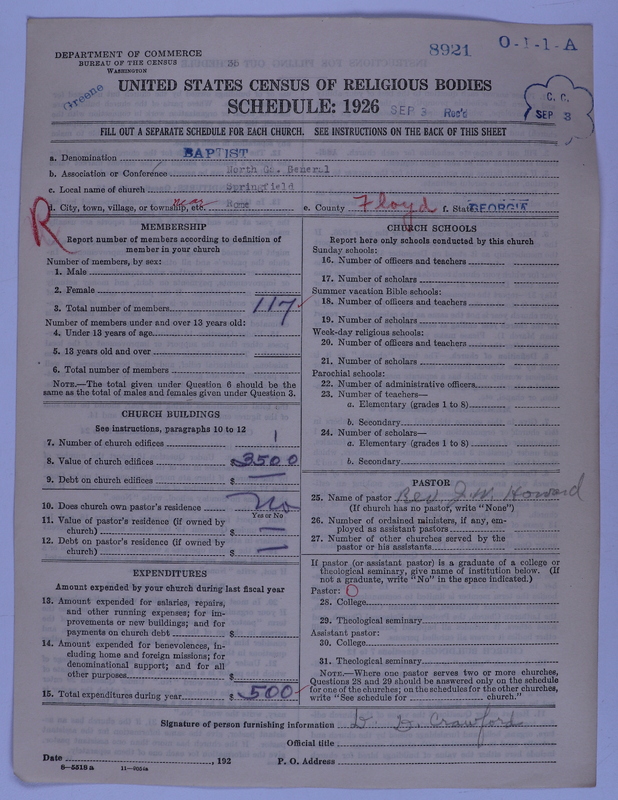 DEPARTMENT OF COMMERCE
BUREAU OF THE CENSUS
WASHINGTON
36
8921
O-1-1-A
Greene
UNITED STATES CENSUS OF RELIGIOUS BODIES
SCHEDULE: 1926
SEP 3 Rec'd
C. C.
SEP 3
FILL OUT A SEPARATE SCHEDULE FOR EACH CHURCH. SEE INSTRUCTIONS ON THE BACK OF THIS SHEET
a. Denomination BAPTIST
b. Association or Conference North Ga. General
c. Local name of church Springfield
d. City, town, village, or township, etc. near Rome e. County Floyd f. State GEORGIA
R
MEMBERSHIP
Report number of members according to definition of
member in your church
Number of members, by sex:
1. Male
2. Female
3. Total number of members 117
Number of members under and over 13 years old:
4. Under 13 years of age
5. 13 years old and over
6. Total number of members
NOTE.—The total given under Question 6 should be the
same as the total of males and females given under Question 3.
CHURCH BUILDINGS
See instructions, paragraphs 10 to 12
7. Number of church edifices 1
8. Value of church edifices $3500
9. Debt on church edifices $ —
10. Does church own pastor's residence No
Yes or No
11. Value of pastor's residence (if owned by
church) $ —
12. Debt on pastor's residence (if owned by
church) $ —
EXPENDITURES
Amount expended by your church during last fiscal year
13. Amount expended for salaries, repairs,
and other running expenses; for im-
provements or new buildings; and for
payments on church debt $
14. Amount expended for benevolences, in-
cluding home and foreign missions; for
denominational support; and for all
other purposes $
15. Total expenditures during year $ 500
CHURCH SCHOOLS
Report here only schools conducted by this church
Sunday schools:
16. Number of officers and teachers
17. Number of scholars
Summer vacation Bible schools:
18. Number of officers and teachers
19. Number of scholars
Week-day religious schools:
20. Number of officers and teachers
21. Number of scholars
Parochial schools:
22. Number of administrative officers
23. Number of teachers—
a. Elementary (grades 1 to 8)
b. Secondary
24. Number of scholars—
a. Elementary (grades 1 to 8)
b. Secondary
PASTOR
25. Name of pastor Rev J. W. Howard
(If church has no pastor, write "None")
26. Number of ordained ministers, if any, em-
ployed as assistant pastors
27. Number of other churches served by the
pastor or his assistants
If pastor (or assistant pastor) is a graduate of a college or
theological seminary, give name of institution below. (If
not a graduate, write "No" in the space indicated.)
Pastor: O
28. College
29. Theological seminary
Assistant pastor:
30. College
31. Theological seminary
NOTE.—Where one pastor serves two or more churches,
Questions 28 and 29 should be answered only on the schedule
for one of the churches; on the schedules for the other churches,
write "See schedule for church."
Signature of person furnishing information D. D. Crawford
Official title
Date , 192 P. O. Address
8—5518 a